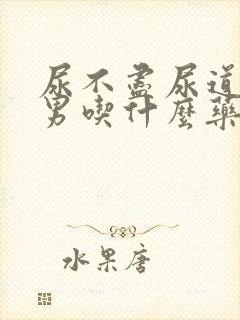 尿不盡尿道
男喫什麼藥
水果唐